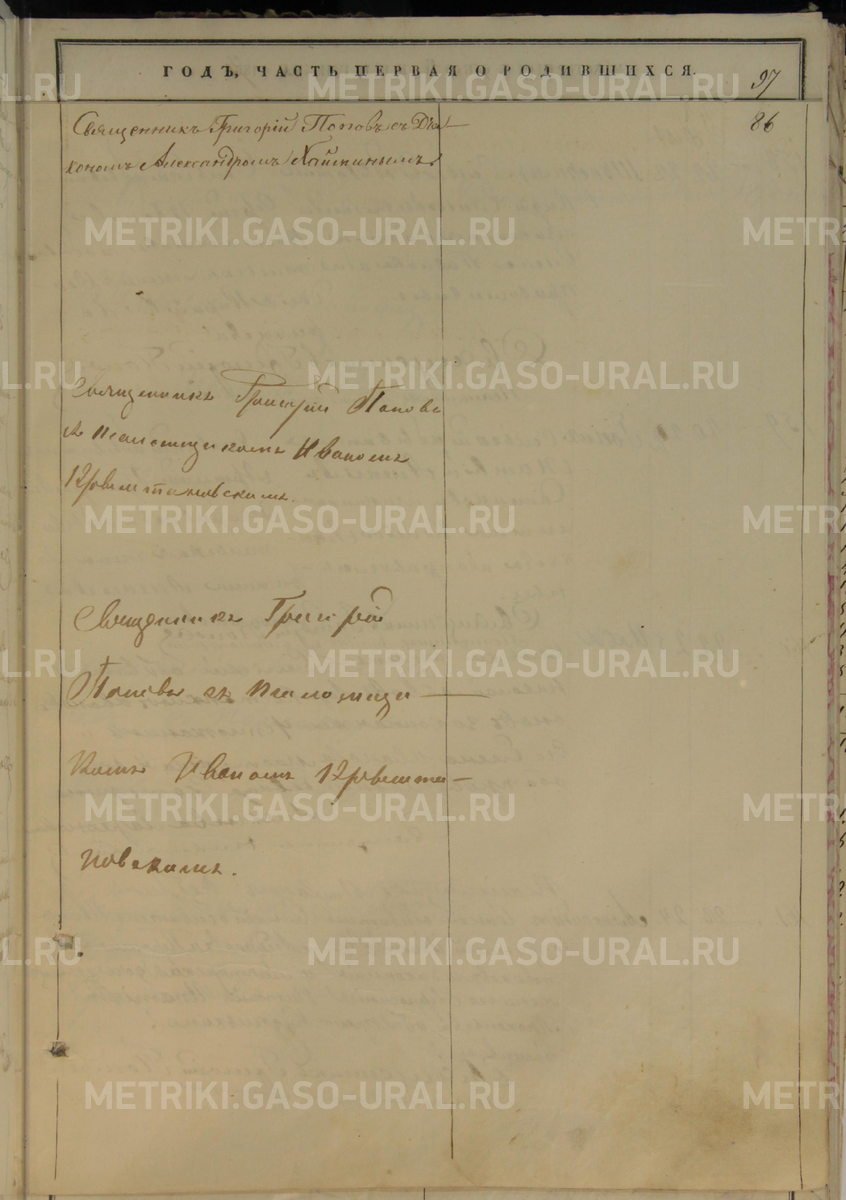 ГОДЪ, ЧАСТЬ ПЕРВАЯ О РОДИВШИХСЯ.
97
86
Священникъ Григорій Поповъ съ Діа-
кономъ Александромъ Хайминымъ
Священникъ Григорій Поповъ
съ псаломщикомъ Иваномъ
Священникъ Григорій
Поповъ съ псаломщи-
комъ Иваномъ
новскимъ.
METRIKI.GASO-URAL.RU